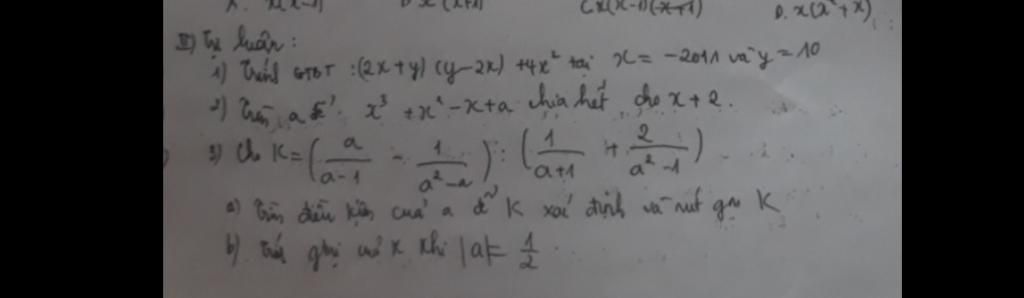 A. x(x-1) D x(x+1) C x(x-1)(x+1) D. x(x²+x)
II) Tự luận:
1) Tính GTBT : (2x+y)(y-2x) +4x² tại x = -2011 và y = 10
2) Tìm a để x³ +x² -x+a chia hết cho x+2.
3) Cho K = (a/(a-1) - 1/(a²-a)) : (1/(a+1) + 2/(a²-1))
a) Tìm điều kiện của a để K xác định và rút gọn K
b) Tính giá trị của K khi |a|= 1/2